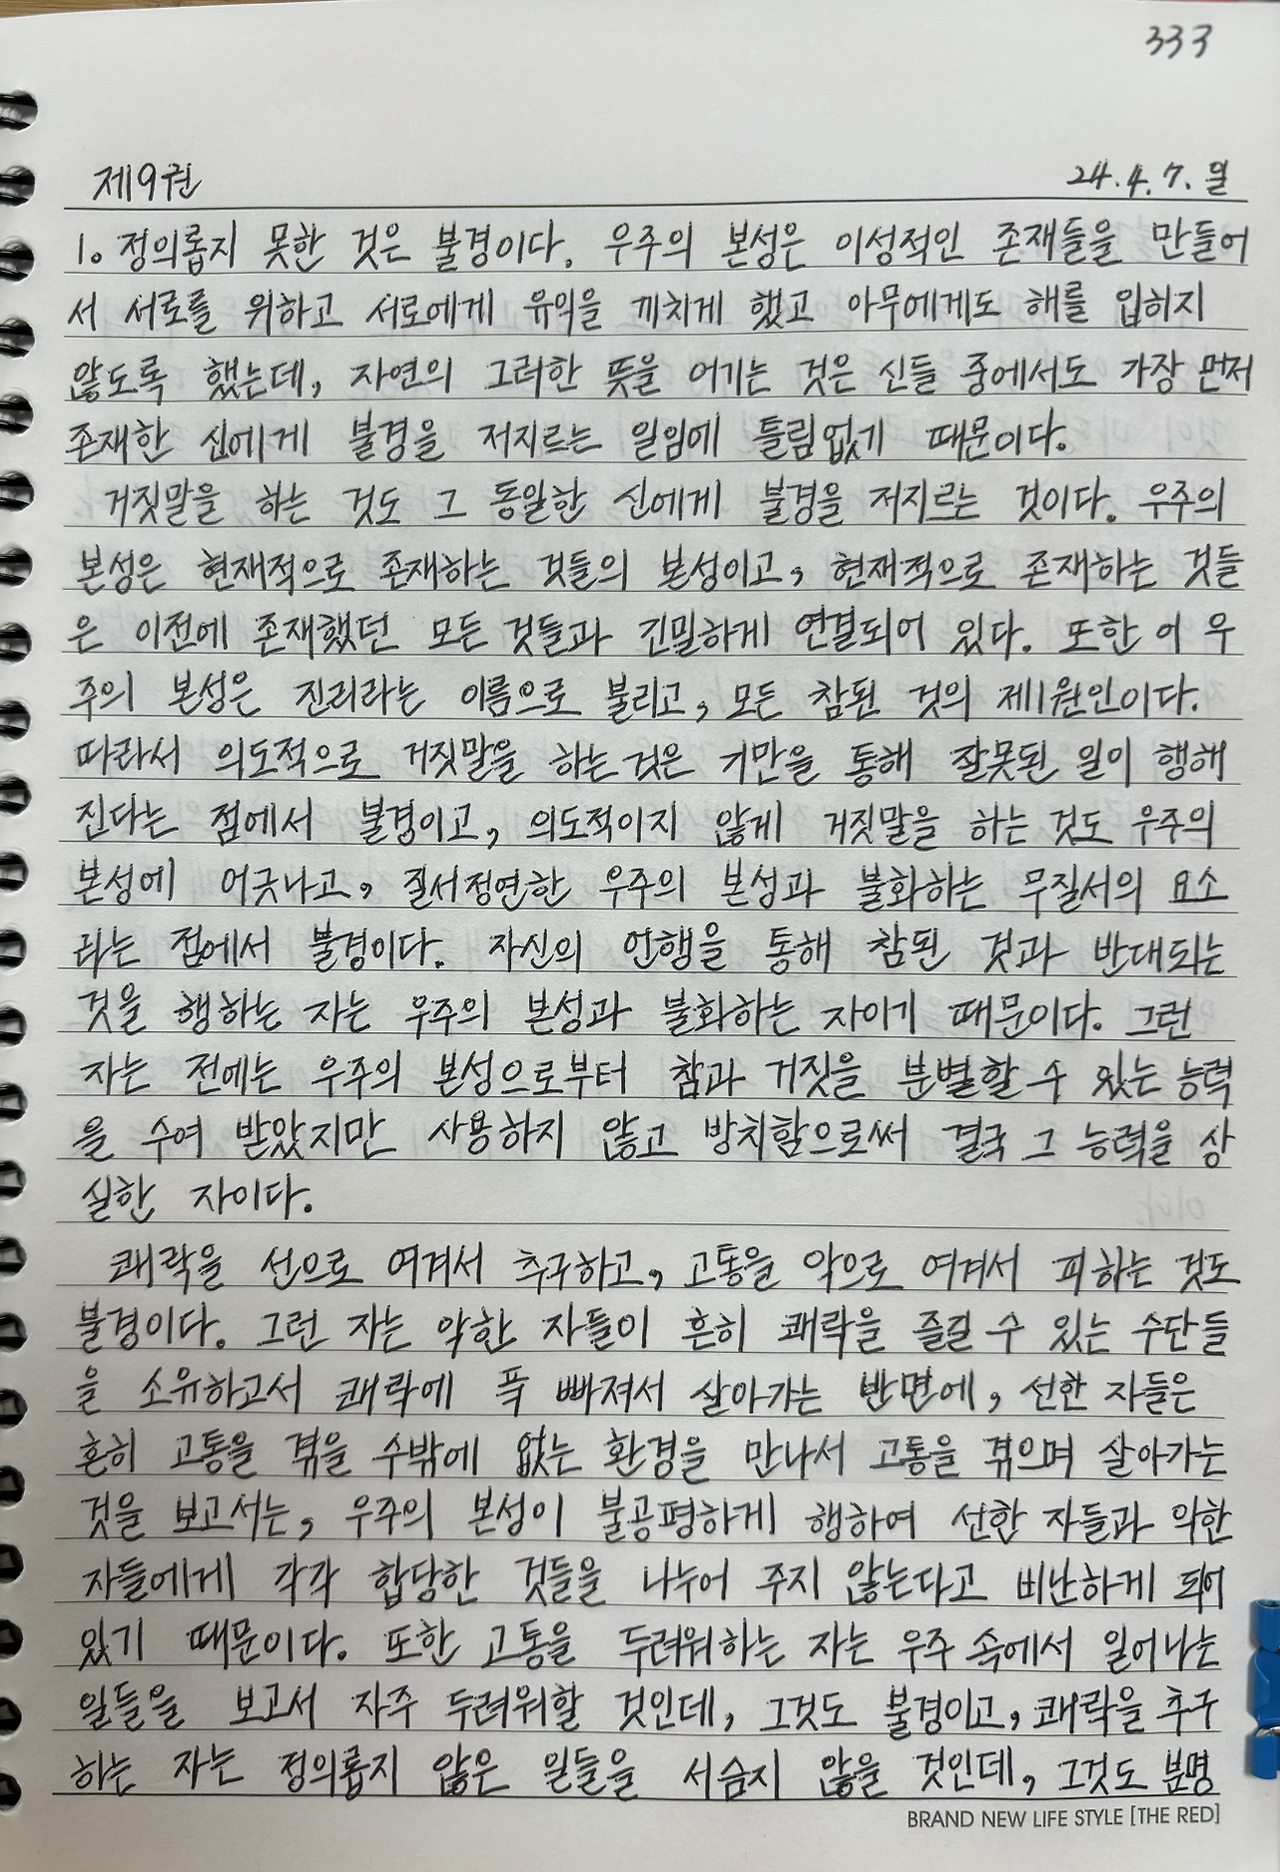 333
제9권 24.4.7.월
1. 정의롭지 못한 것은 불경이다. 우주의 본성은 이성적인 존재들을 만들어
서 서로를 위하고 서로에게 유익을 끼치게 했고 아무에게도 해를 입히지
않도록 했는데, 자연의 그러한 뜻을 어기는 것은 신들 중에서도 가장 먼저
존재한 신에게 불경을 저지르는 일임에 틀림없기 때문이다.
거짓말을 하는 것도 그 동일한 신에게 불경을 저지르는 것이다. 우주의
본성은 현재적으로 존재하는 것들의 본성이고, 현재적으로 존재하는 것들
은 이전에 존재했던 모든 것들과 긴밀하게 연결되어 있다. 또한 이 우
주의 본성은 진리라는 이름으로 불리고, 모든 참된 것의 제1원인이다.
따라서 의도적으로 거짓말을 하는 것은 기만을 통해 잘못된 일이 행해
진다는 점에서 불경이고, 의도적이지 않게 거짓말을 하는 것도 우주의
본성에 어긋나고, 질서정연한 우주의 본성과 불화하는 무질서의 요소
라는 점에서 불경이다. 자신의 언행을 통해 참된 것과 반대되는
것을 행하는 자는 우주의 본성과 불화하는 자이기 때문이다. 그런
자는 전에는 우주의 본성으로부터 참과 거짓을 분별할 수 있는 능력
을 수여 받았지만 사용하지 않고 방치함으로써 결국 그 능력을 상
실한 자이다.
쾌락을 선으로 여겨서 추구하고, 고통을 악으로 여겨서 피하는 것도
불경이다. 그런 자는 악한 자들이 흔히 쾌락을 즐길 수 있는 수단들
을 소유하고서 쾌락에 푹 빠져서 살아가는 반면에, 선한 자들은
흔히 고통을 겪을 수밖에 없는 환경을 만나서 고통을 겪으며 살아가는
것을 보고서는, 우주의 본성이 불공평하게 행하여 선한 자들과 악한
자들에게 각각 합당한 것들을 나누어 주지 않는다고 비난하게 되어
있기 때문이다. 또한 고통을 두려워하는 자는 우주 속에서 일어나는
일들을 보고서 자주 두려워할 것인데, 그것도 불경이고, 쾌락을 추구
하는 자는 정의롭지 않은 일들을 서슴지 않을 것인데, 그것도 분명
BRAND NEW LIFE STYLE [THE RED]